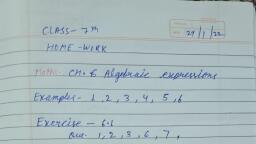 CLASS - 7th
29/1/22
HOME - WORK
Maths - CH. 6 Algebraic expressions
Examples - 1, 2, 3, 4, 5, 6
Exercise - 6.1
Que. 1, 2, 3, 6, 7,